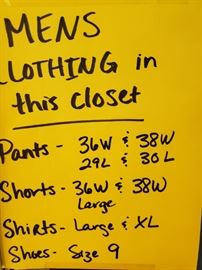 MENS
CLOTHING in
this closet
Pants - 36W & 38W
29L & 30L
Shorts - 36W & 38W
Large
Shirts - Large & XL
Shoes - Size 9